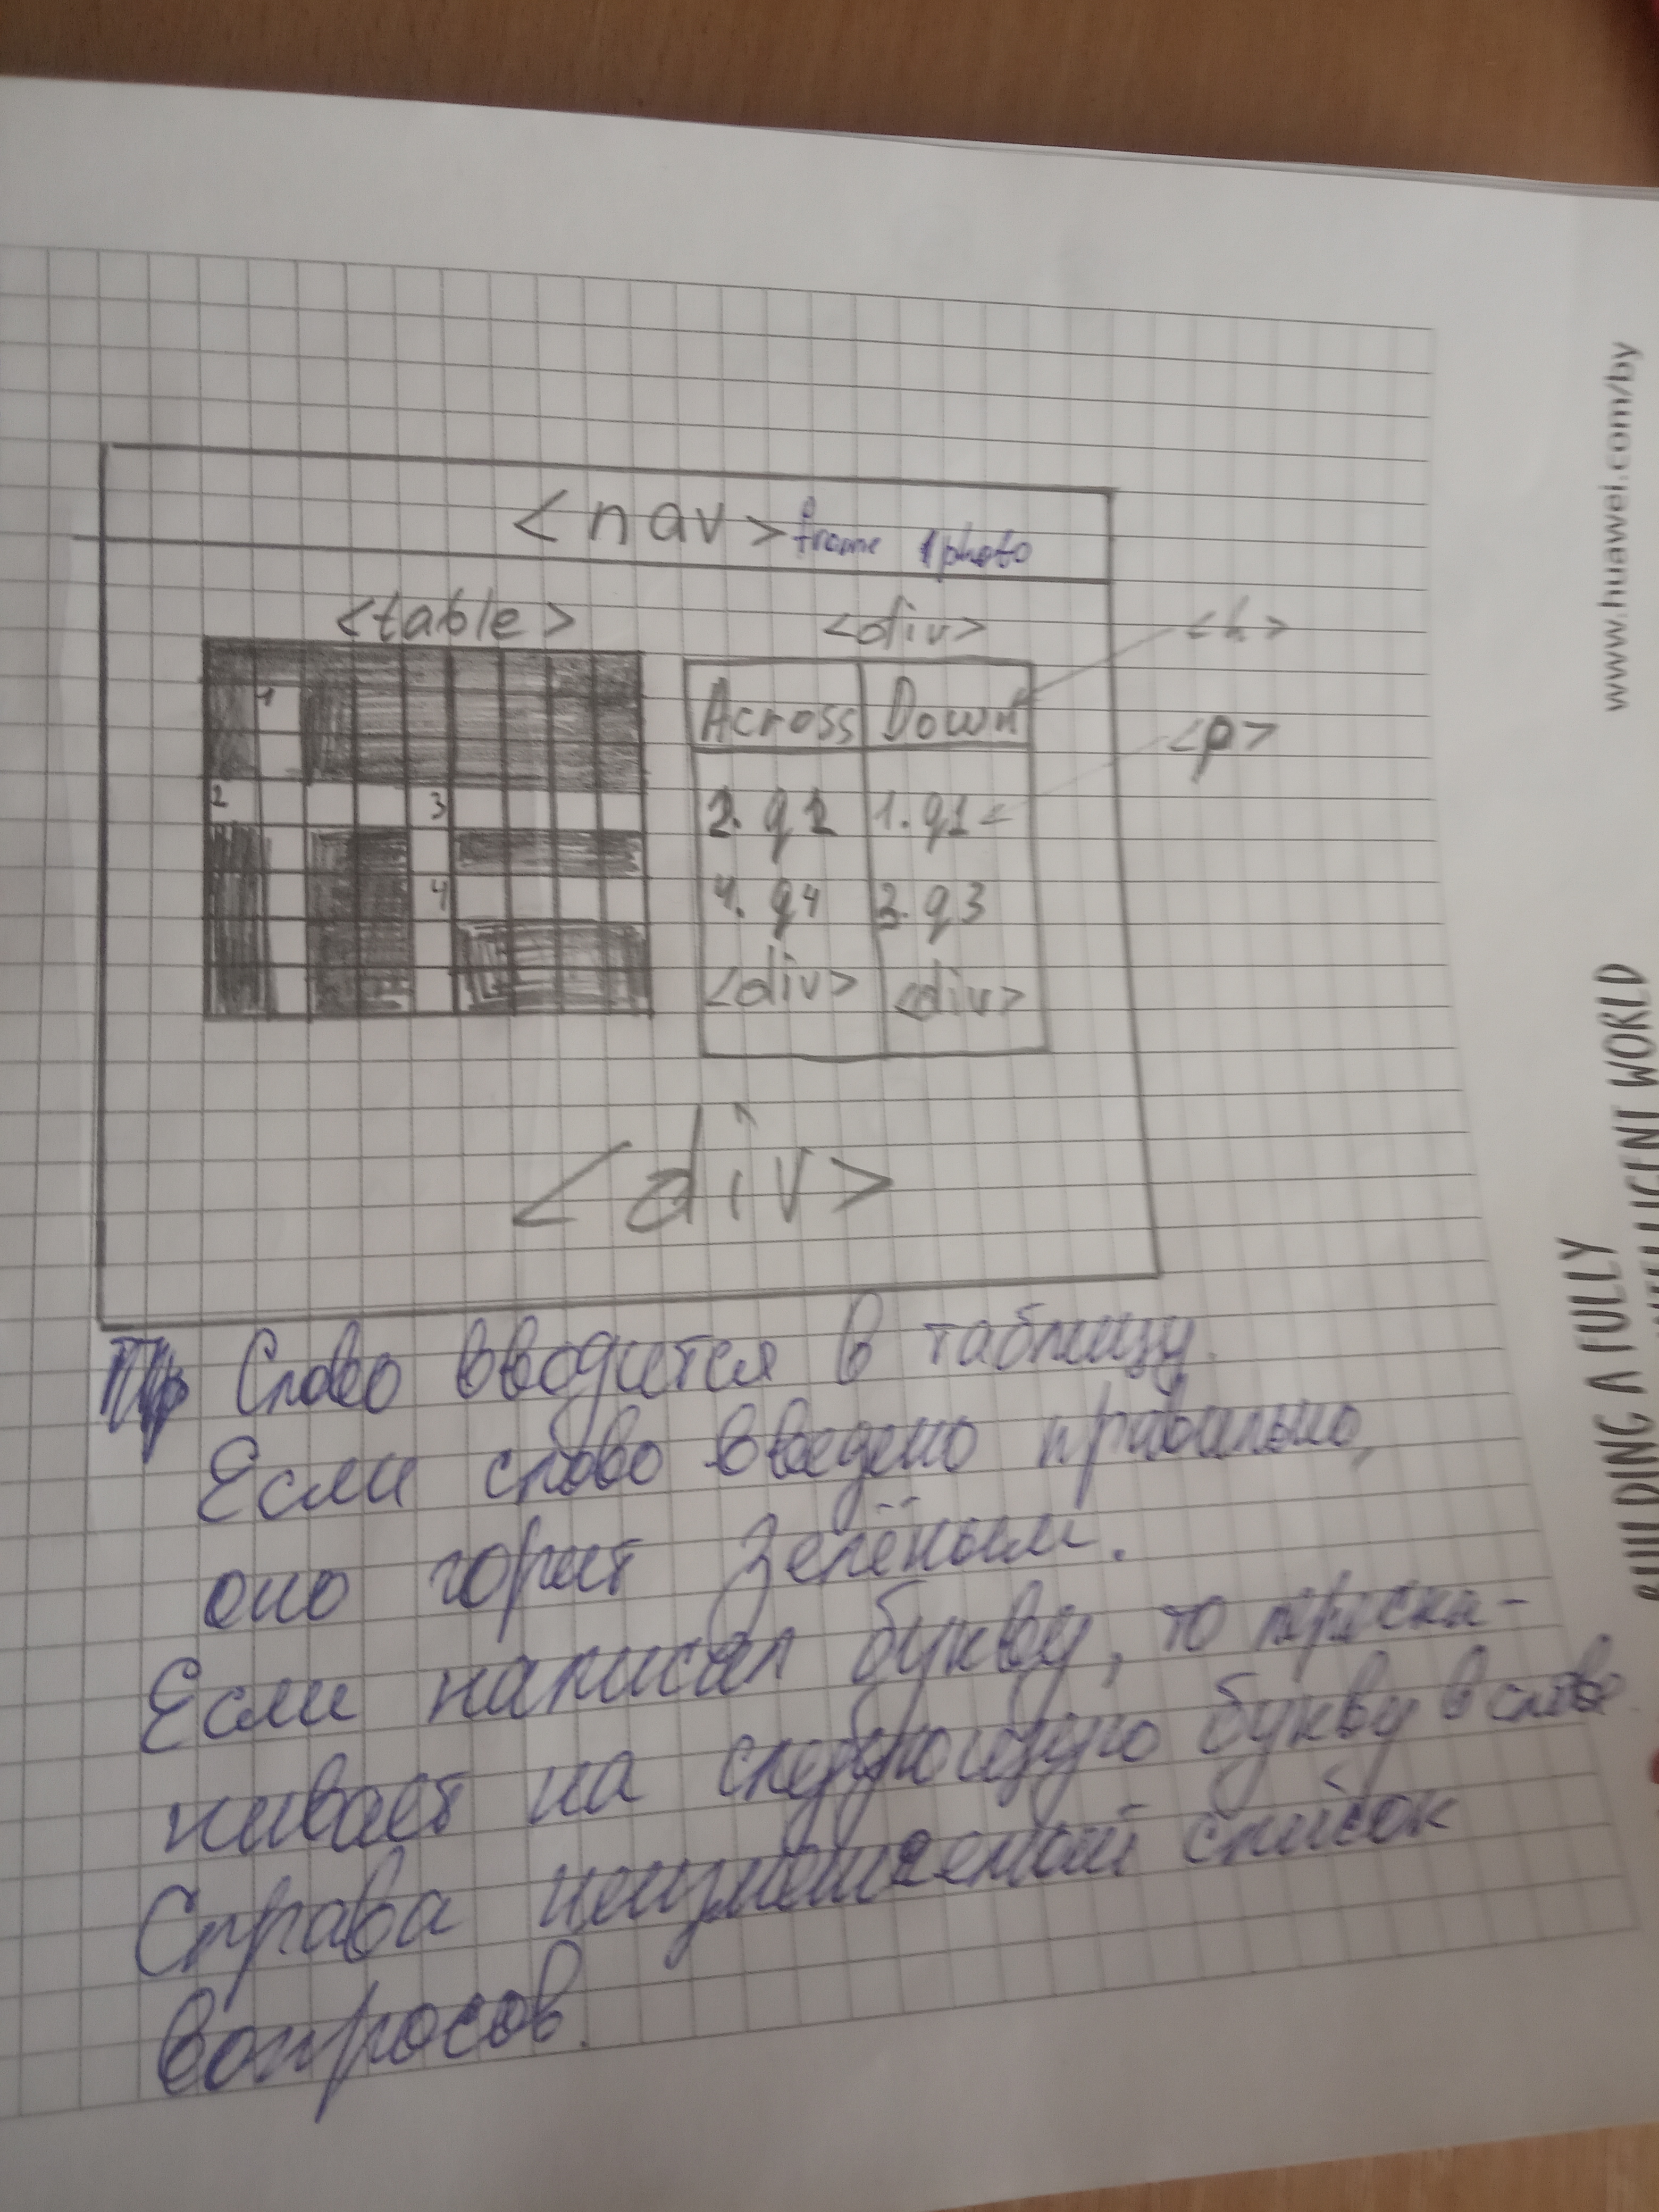 <nav> frame 1 photo
<table> <div> <h>
1
Across Down
<p>
2 3
2. q2 1. q1
4
4. q4 3. q3
<div> <div>
<div>
Слово вводится в таблицу.
Если слово введено правильно,
оно горит зелёным.
Если написал букву, то переска-
кивает на следующую букву в слове.
Справа неизменяемый список
вопросов.
www.huawei.com/by
BUILDING A FULLY
INTELLIGENT WORLD